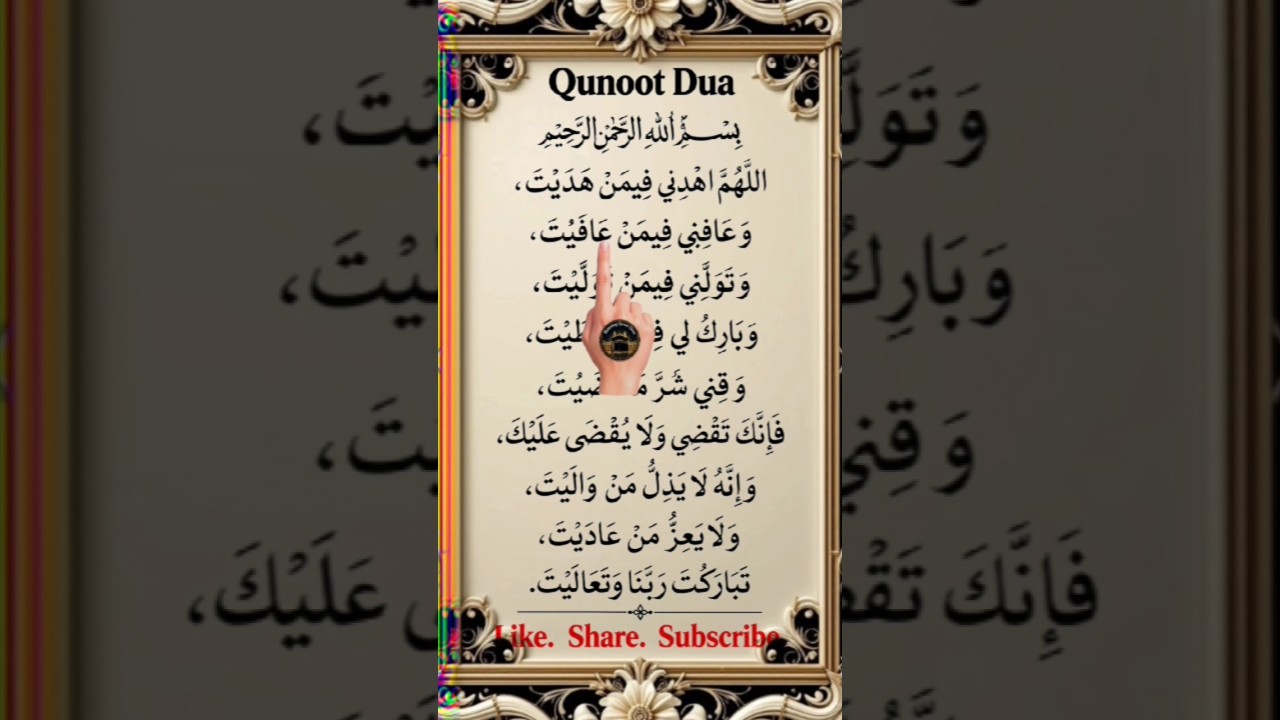 Qunoot Dua
بِسْمِ اللهِ الرَّحْمٰنِ الرَّحِيْمِ
اللَّهُمَّ اهْدِنِي فِيمَنْ هَدَيْتَ،
وَعَافِنِي فِيمَنْ عَافَيْتَ،
وَتَوَلَّنِي فِيمَنْ
وَبَارِكْ لِي
وَقِنِي شَرَّ
فَإِنَّكَ تَقْضِي وَلَا يُقْضَى عَلَيْكَ،
وَإِنَّهُ لَا يَذِلُّ مَنْ وَالَيْتَ،
وَلَا يَعِزُّ مَنْ عَادَيْتَ،
تَبَارَكْتَ رَبَّنَا وَتَعَالَيْتَ.
Like. Share. Subscribe